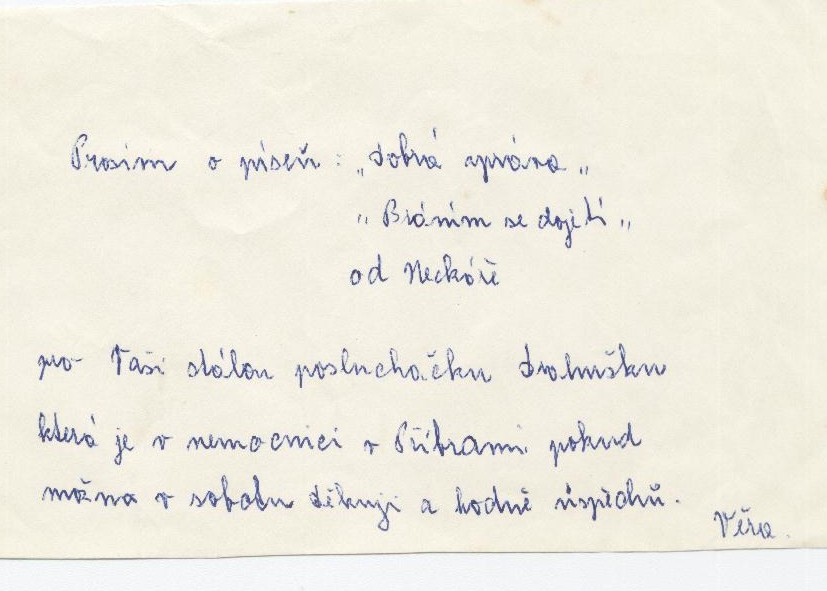 Prosím o píseň: „Dobrá zpráva„
„Bráním se dojetí„
od Neckáře
pro Vaši stálou posluchačku Drahušku
která je v nemocnici v Příbrami pokud
možna v sobotu děkuji a hodně úspěchů.
Věra.